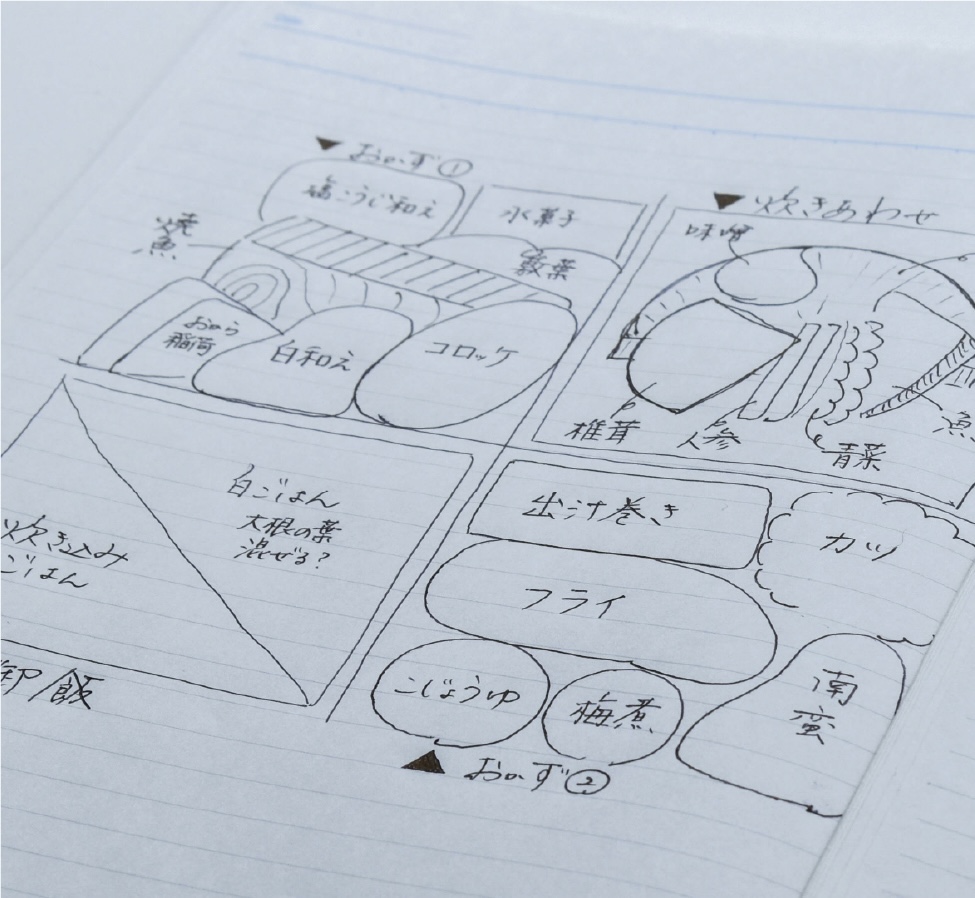 ▼ おかず①
塩こうじ和え
水菓子
焼
魚
おから
稲荷
白和え
コロッケ
▼ 炊きあわせ
味噌
椎茸
人参
青菜
魚
炊き込み
ごはん
白ごはん
大根の葉
混ぜる？
御飯
出汁巻き
カツ
フライ
こじょうゆ
梅煮
南
蛮
▲ おかず②